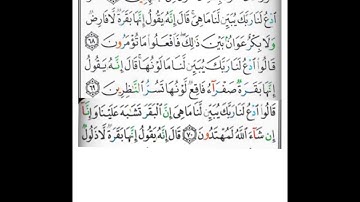 ٱدْعُ لَنَا رَبَّكَ يُبَيِّن لَّنَا مَا هِىَ قَالَ إِنَّهُۥ يَقُولُ إِنَّهَا بَقَرَةٌ لَّا فَارِضٌ
وَلَا بِكْرٌ عَوَانٌۢ بَيْنَ ذَٰلِكَ فَٱفْعَلُوا۟ مَا تُؤْمَرُونَ ٦٨
قَالُوا۟ ٱدْعُ لَنَا رَبَّكَ يُبَيِّن لَّنَا مَا لَوْنُهَا قَالَ إِنَّهُۥ يَقُولُ
إِنَّهَا بَقَرَةٌ صَفْرَآءُ فَاقِعٌ لَّوْنُهَا تَسُرُّ ٱلنَّٰظِرِينَ ٦٩
قَالُوا۟ ٱدْعُ لَنَا رَبَّكَ يُبَيِّن لَّنَا مَا هِىَ إِنَّ ٱلْبَقَرَ تَشَٰبَهَ عَلَيْنَا وَإِنَّآ
إِن شَآءَ ٱللَّهُ لَمُهْتَدُونَ ٧٠ قَالَ إِنَّهُۥ يَقُولُ إِنَّهَا بَقَرَةٌ لَّا ذَلُولٌ